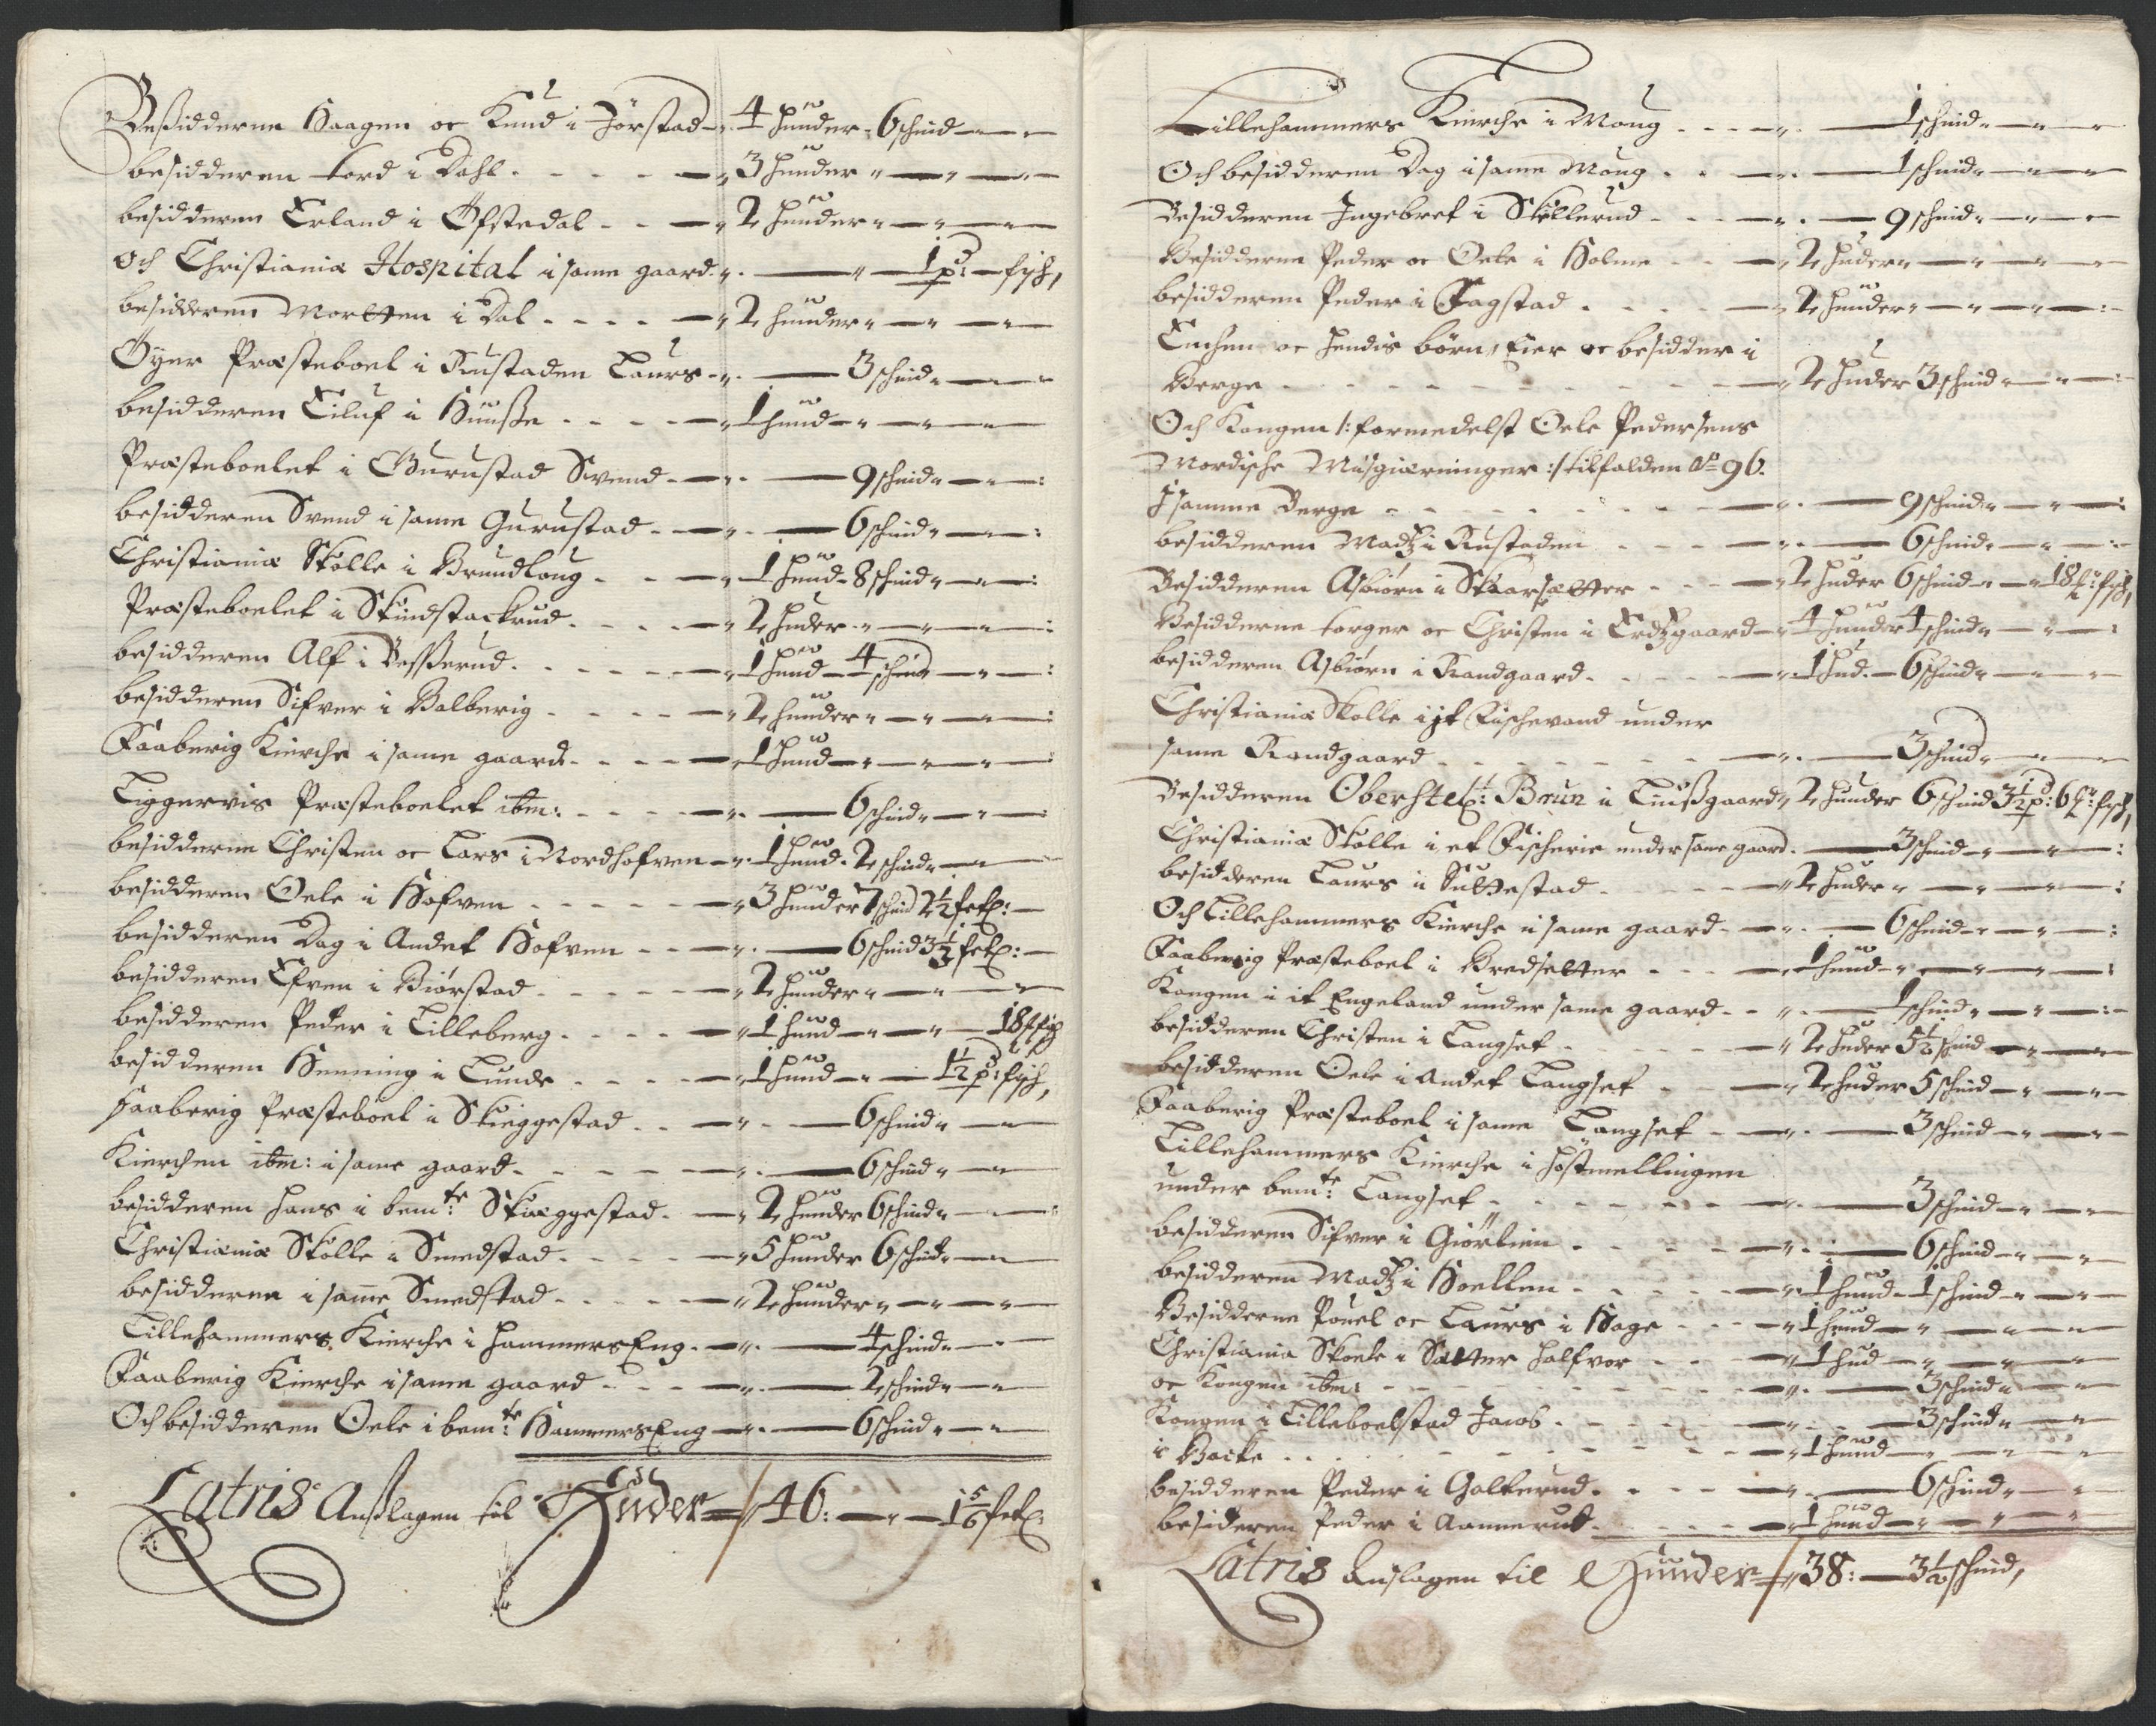 Beßidderne Haagen oc Knud i Jörstad 4 hunder 6 schind
besidderen tord i Dahl 3 hunder
besidderen Erland i Öfstedal 2 hunder
och Christianiæ Hospital i same gaard 1 pd: fisch,
besidderen Morten i Dal 2 hunder
Öyer Præsteboel i Rustaden Laurs 3 schind
besidderen Eiluf i Huuße 1 hund
Præsteboelet i Gurustad Svend 9 schind
besidderen Svend i same Gurustad 6 schind
Christianiæ Skolle i Brundloug 1 hund 8 schind
Præsteboelet i Skindstackrud 2 huder
besidderen Alf i Beßerud 1 hund 4 schind
besidderen Sifver i Balberig 2 hunder
Faaberig Kierche i same gaard 1 hund
Liggervis Præsteboelet ibm: 6 schind
besidderne Christen oc Lars i Nordhofven 1 hund 2 schind
besidderen Oele i Hofven 3 hunder 7 schind 2½ setl:
besidderen Dag i Andet Hofven 6 schind 3⅓ setl:
besidderen Efven i Biörstad 2 hunder
besidderen Peder i Lilleberg 1 hund 18 fisch
besidderen Henning i Lunde 1 hund 1½ pd: fisch,
faaberig Præsteboel i Skieggestad 6 schind
Kierchen ibm: i same gaard 6 schind
besidderen Hans i bemte: Skieggestad 2 hunder 6 schind
Christianiæ Skolle i Smedstad 5 hunder 6 schind
besidderen i samme Smedstad 2 hunder
Lillehammers Kierche i HammersEng 4 schind
Faaberig Kierche i same gaard 2 schind
Och besidderen Oele i bemte: HammersEng 6 schind
Latris Anslagen til Huder 46: 1⅚ setl:
Lillehammers Kierche i Moug 1 schind
Och besidderen Dag i same Moug 1 schind
Besidderen Ingebret i Skillerud 9 schind
Besidderne Peder oc Oele i Holme 2 huder
besidderen Peder i Fagstad 2 hunder
Enchen oc hendis börn, Eier oc besidder i
Berge 2 huder 3 schind
Och Kongen /: formedelst Oele Pedersens
Mordische Misgierninger :/ tilfalden Ao 96.
I samme Berge 9 schind
besidderen Madtz i Rustaden 6 schind
Besidderen Asbiörn i Skaarsetter 2 huder 6 schind 18 fisch,
Besidderne torger oc Christen i Erdtzgaard 4 hunder 4 schind
besidderen Asbiörn i Randgaard 1 hud 6 schind
Christianiæ Skolle i it Fischevand under
same Randgaard 3 schind
Besidderen Oberstel: Brun i Luußgaard 2 hunder 6 schind 3½ pd: 6 fisch,
Christianiæ Skolle i et Fischerie under same gaard 3 schind
besidderen Laurs i Suttestad 2 huder
Och Lillehammers Kierche i same gaard 6 schind
Faaberig Præsteboel i Bredsetter 1 hund
Kongen i it Engeland under same gaard 1 schind
besidderen Christen i Langset 2 huder 5½ schind
besidderen Oele i andet Langset 2 huder 5 schind
Faaberig Præsteboel i same Langset 3 schind
Lillehammers Kierche i Höstmellingen
under bemte: Langset 3 schind
besidderen Sifver i Giörlien 6 schind
besidderen Madtz i Hoellen 1 hund 1 schind
Besidderne Pouel oc Laurs i Hage 1 hund
Christiania Skoele i Sætter Halfvor 1 hud
oc Kongen ibm: 3 schind
Kongen i Lilleboelstad Jacob 3 schind
i Backe 1 hund
besidderen Peder i Galterud 6 schind
besidderen Peder i Aannerud 1 hund
Latris Anslagen til Hunder 38: 3½ schind,